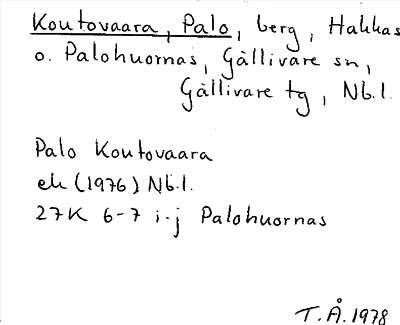 Koutovaara, Palo, berg, Hakkas
o. Palohuornas, Gällivare sn,
Gällivare tg, Nb.l.
Palo Koutovaara
ek (1976) Nb.l.
27K 6-7 i-j Palohuornas
T.Å. 1978